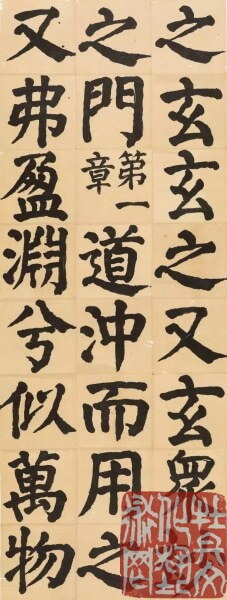 之玄玄之又玄衆
之門第一章道沖而用之
又弗盈淵兮似萬物